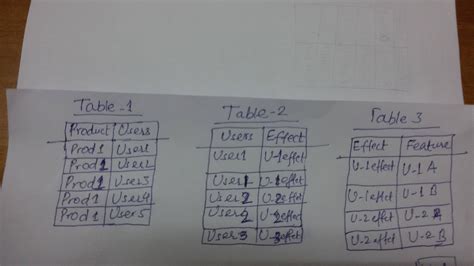 Table-1
Product Users
Prod1 User1
Prod1 User2
Prod1 User3
Prod1 User4
Prod1 User5
Table-2
Users Effect
User1 U-1effect
User1 U-2effect
User2 U-2effect
User2 U-2effect
User3 U-2effect
Table 3
Effect Feature
U-1effect U-1 A
U-1effect U-1 B
U-2effect U-2 A
U-2effect U-2 B